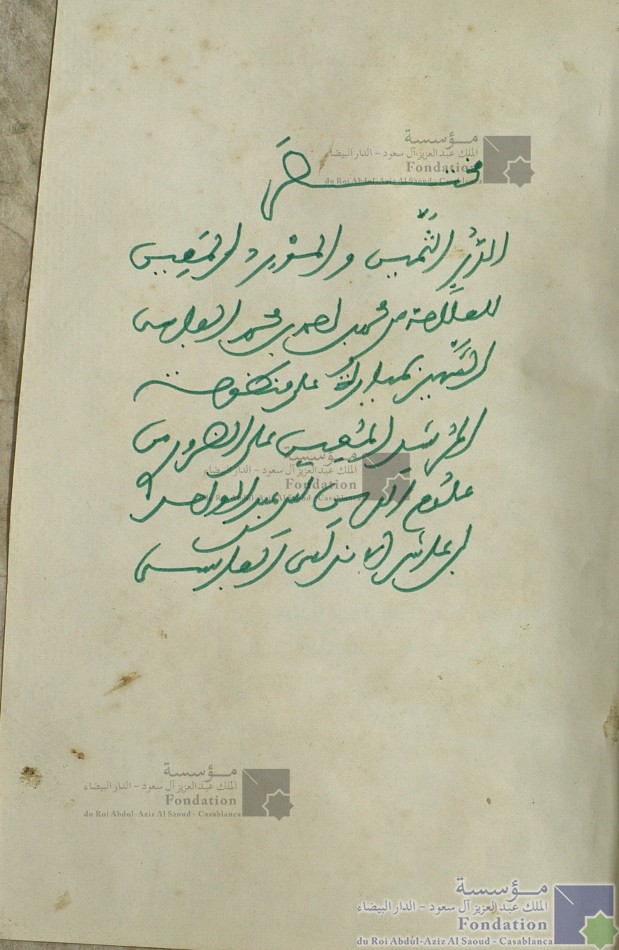 مؤسسة
الملك عبد العزيز آل سعود - الدار البيضاء
Fondation
du Roi Abdul-Aziz Al Saoud - Casablanca
مختصر
الدُّرّ الثَّمين والمَوْرِد المَعين
للعلَّامة محمد بن احمد بن محمد الفاسي
الشَّهير بميارة على منظومة
المُرشد المُعين على الضروري من
علوم الدين لابن عبد الواحد
ابن عاشر الاندلسي الفاسي
مؤسسة
الملك عبد العزيز آل سعود - الدار البيضاء
Fondation
du Roi Abdul-Aziz Al Saoud - Casablanca
مؤسسة
الملك عبد العزيز آل سعود - الدار البيضاء
Fondation
du Roi Abdul-Aziz Al Saoud - Casablanca
مؤسسة
الملك عبد العزيز آل سعود - الدار البيضاء
Fondation
du Roi Abdul-Aziz Al Saoud - Casablanca